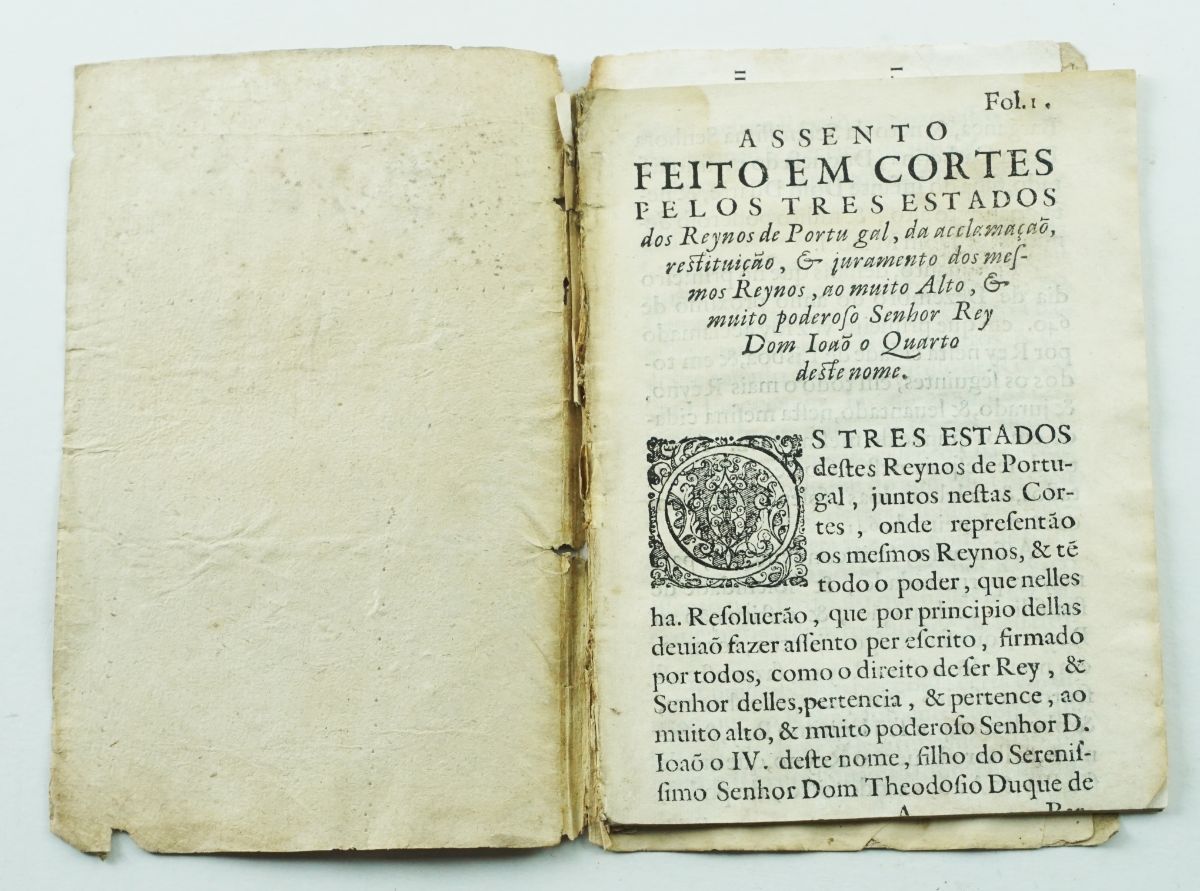 Fol. 1.
ASSENTO
FEITO EM CORTES
PELOS TRES ESTADOS
dos Reynos de Portu gal, da acclamaçaõ,
reſtituição, & juramento dos meſ-
mos Reynos, ao muito Alto, &
muito poderoſo Senhor Rey
Dom Ioaõ o Quarto
deſte nome.
OS TRES ESTADOS
deſtes Reynos de Portu-
gal, juntos neſtas Cor-
tes, onde repreſentão
os meſmos Reynos, & tẽ
todo o poder, que nelles
ha. Reſoluerão, que por principio dellas
deuiaõ fazer aſſento per eſcrito, firmado
por todos, como o direito de ſer Rey, &
Senhor delles, pertencia, & pertence, ao
muito alto, & muito poderoſo Senhor D.
Ioaõ o IV. deſte nome, filho do Sereniſ-
ſimo Senhor Dom Theodoſio Duque de
A